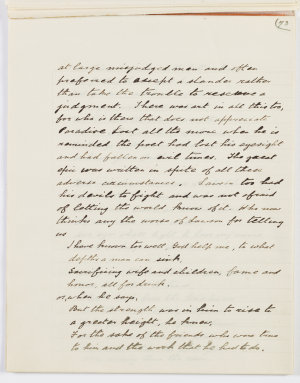 73
at large misjudged man and often
preferred to accept a slander rather
than take the trouble to reserve a
judgment. There was art in all this too,
for who is there that does not appreciate
Paradise Lost all the more when he is
reminded the poet had lost his eyesight
and had fallen on evil times. The great
epic was written in spite of all these
adverse circumstances. Lawson too had
his devils to fight and was not afraid
of letting the world know of it. Who now
thinks any the worse of Lawson for telling
us
I have known too well, God help me, to what
depths a man can sink,
Sacrificing wife and children, fame and
honor, all for drink.
or, when he says,
But the strength was in him to rise to
a greater height, he knew,
For the sake of the friends who were true
to him and the work that he had to do.